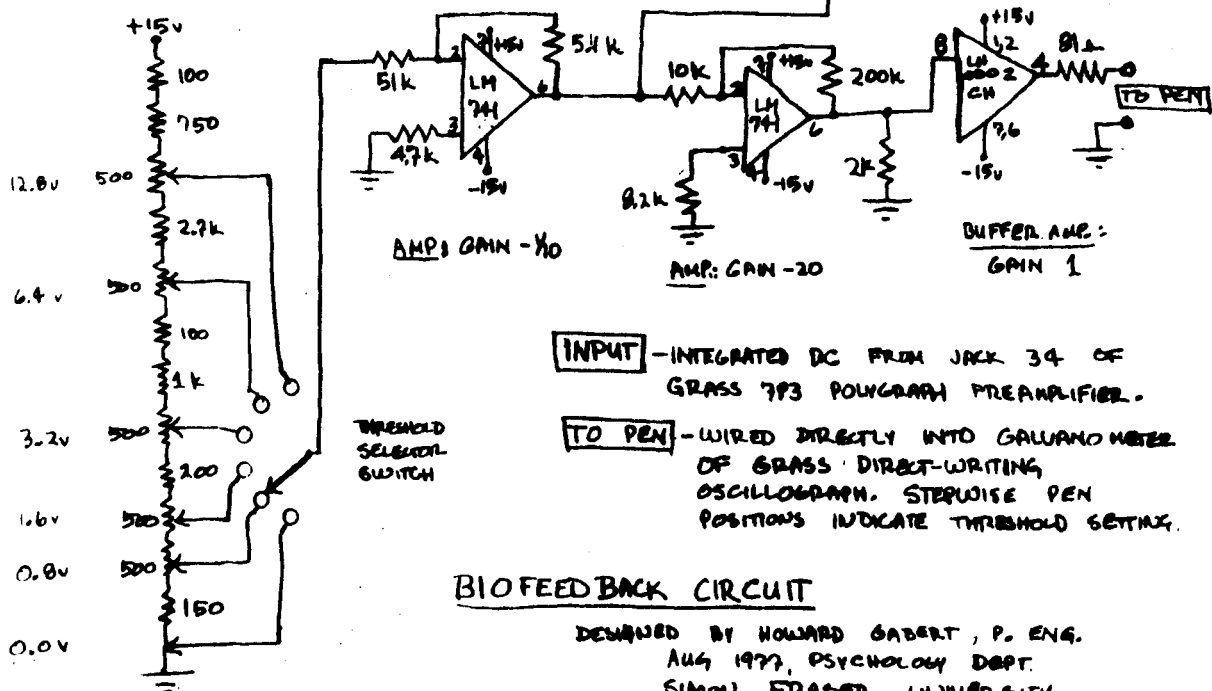 +15v
100
750
12.8v 500
2.7k
6.4v 500
100
1k
3.2v 500
200
1.6v 500
0.8v 500
150
0.0v
THRESHOLD
SELECTOR
SWITCH
51k
2
7
+15v
LM
741
6
3
4
-15v
4.7k
AMP: GAIN -1/10
10k
2
7
+15v
LM
741
6
3
4
-15v
200k
8.2k
2k
AMP.: GAIN -20
8
+15v
1,2
LH
0002
CH
4
7,6
-15v
TO PEN
BUFFER AMP.:
GAIN 1
INPUT - INTEGRATED DC FROM JACK 34 OF
GRASS 7P3 POLYGRAPH PREAMPLIFIER.
TO PEN - WIRED DIRECTLY INTO GALVANOMETER
OF GRASS DIRECT-WRITING
OSCILLOGRAPH. STEPWISE PEN
POSITIONS INDICATE THRESHOLD SETTING.
BIOFEEDBACK CIRCUIT
DESIGNED BY HOWARD GABERT, P. ENG.
AUG 1977, PSYCHOLOGY DEPT.
SIMON FRASER UNIVERSITY